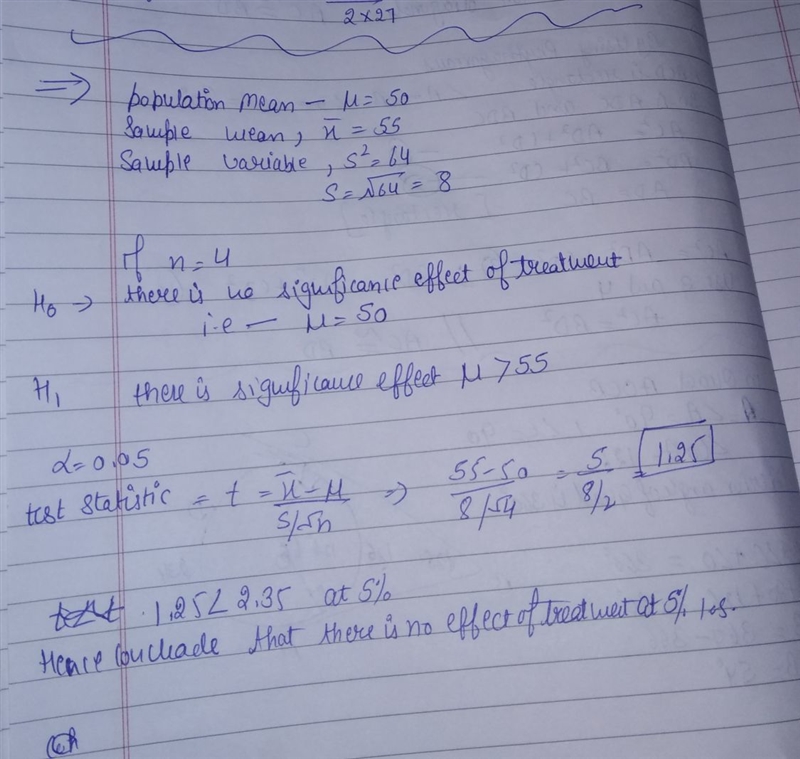 2×27
⇒ population mean — μ = 50
Sample mean, x̄ = 55
Sample variable, S² = 64
S = √64 = 8
If n = 4
H₀ → there is no significance effect of treatment
i.e — μ = 50
H₁ there is significance effect μ > 55
α = 0.05
test statistic = t = x̄ - μ / S/√n ⇒ 55-50 / 8/√4 = 5 / 8/2 = 1.25
1.25 < 2.35 at 5%
Hence conclude that there is no effect of treatment at 5% l.o.s.